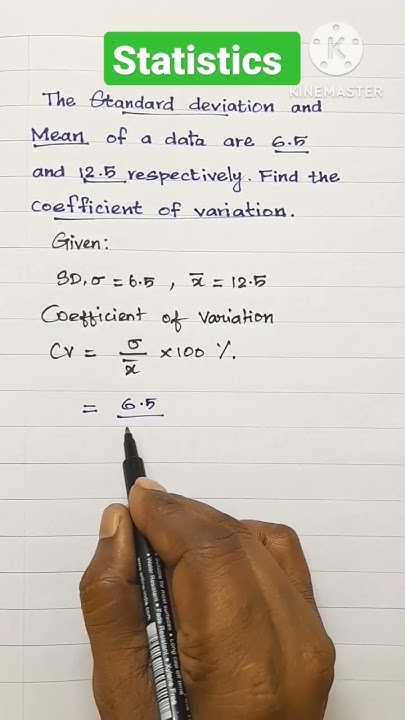 Statistics
KINEMASTER
The Standard deviation and
Mean of a data are 6.5
and 12.5 respectively. Find the
coefficient of variation.
Given:
SD, σ = 6.5 , x̄ = 12.5
Coefficient of Variation
CV = σ/x̄ ×100 %.
= 6.5